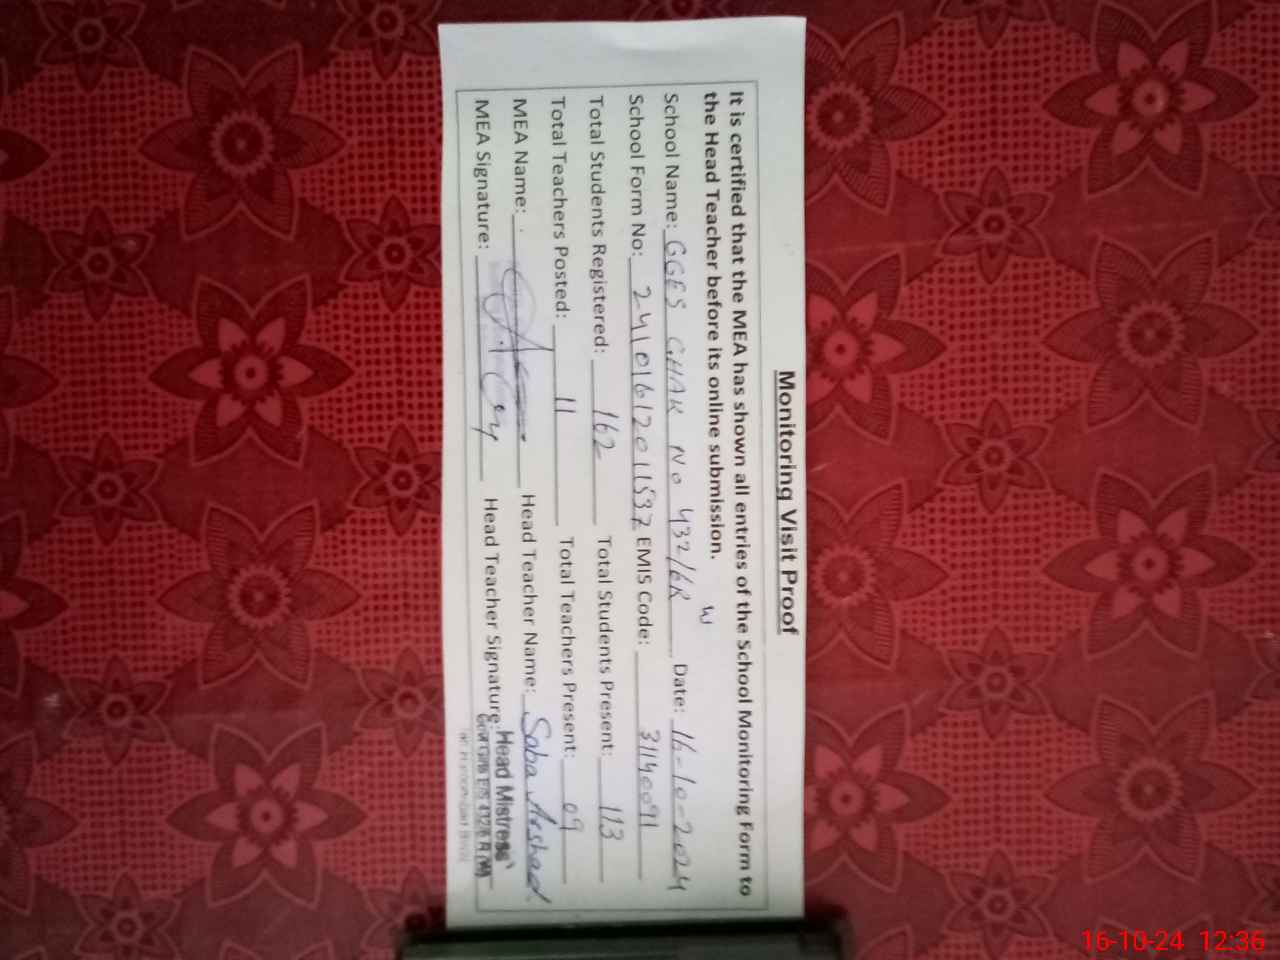 Monitoring Visit Proof
It is certified that the MEA has shown all entries of the School Monitoring Form to
the Head Teacher before its online submission.
W
School Name: GGES CHAK NO 432/6R Date: 16-10-2024
School Form No: EMIS Code: 31140091
Total Students Registered: 162 Total Students Present: 113
Total Teachers Posted: 11 Total Teachers Present: 09
MEA Name: Head Teacher Name: Saba Arshad
MEA Signature: Head Teacher Signature:
Head Mistress
16-10-24 12:36